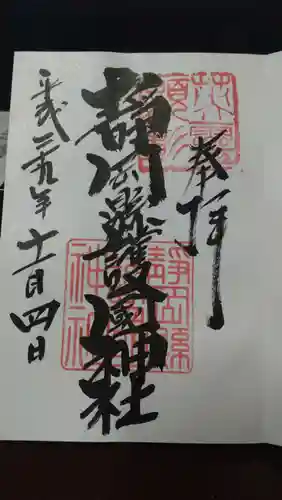 奉拝
静岡縣護國神社
平成二十九年十一月四日
静岡縣
神社